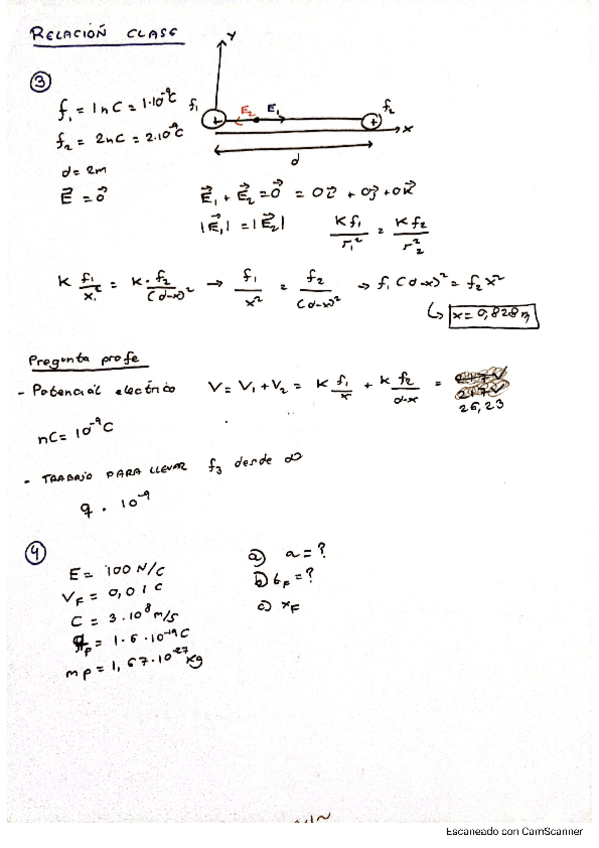 RELACIÓN CLASE
③
f₁ = 1nC = 1·10⁻⁹C
f₂ = 2nC = 2·10⁻⁹C
d = 2m
E⃗ = 0⃗
y
f₁ + E₂ E₁ f₂ +
x
d
E⃗₁ + E⃗₂ = 0⃗ = 0i⃗ + 0j⃗ + 0k⃗
|E⃗₁| = |E⃗₂| K f₁/r₁² = K f₂/r₂²
K f₁/x² = K·f₂/(d-x)² → f₁/x² = f₂/(d-x)² → f₁(d-x)² = f₂x²
↳ x = 0,828m
Pregunta profe
- Potencial eléctrico V = V₁ + V₂ = K f₁/x + K f₂/d-x =
26,23
nC = 10⁻⁹C
- TRABAJO PARA LLEVAR f₃ desde ∞
q · 10⁻⁹
④
E = 100 N/C
V_F = 0,01 C
C = 3·10⁸ m/s
q_p = 1.6·10⁻¹⁹C
mp = 1,67·10⁻²⁷ kg
a) a = ?
b) t_F = ?
c) x_F
Escaneado con CamScanner